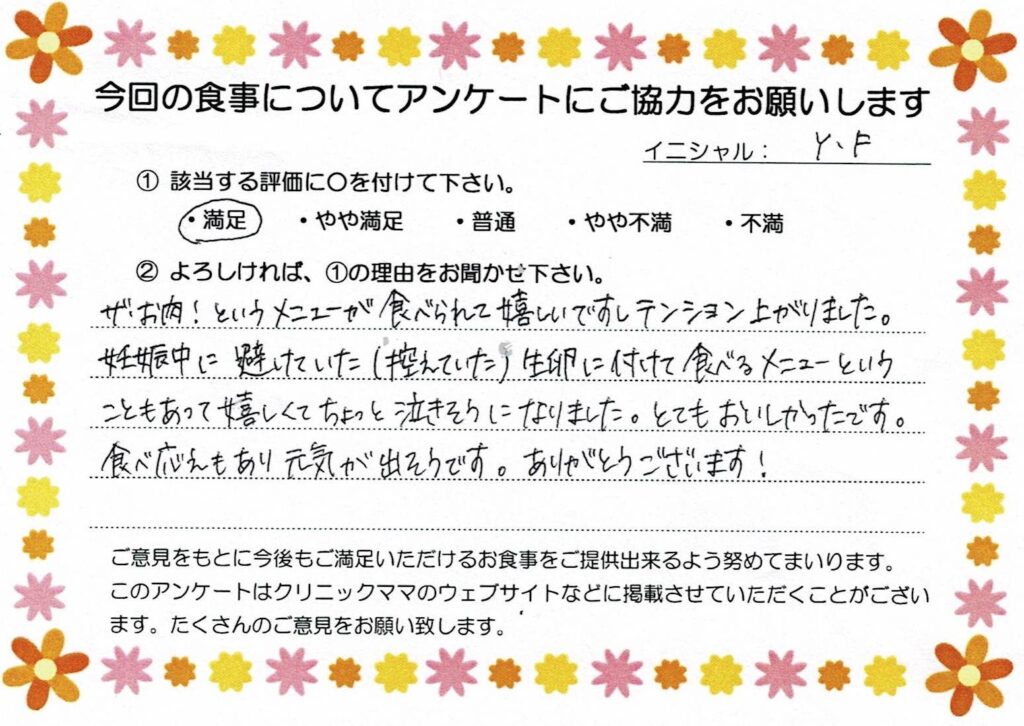 今回の食事についてアンケートにご協力をお願いします
イニシャル： Y・F
① 該当する評価に〇を付けて下さい。
・満足 ・やや満足 ・普通 ・やや不満 ・不満
② よろしければ、①の理由をお聞かせ下さい。
ザ・お肉！というメニューが食べられて嬉しいですしテンション上がりました。
妊娠中に避けていた(控えていた)生卵に付けて食べるメニューという
こともあって嬉しくてちょっと泣きそうになりました。とてもおいしかったです。
食べ応えもあり元気が出そうです。ありがとうございます！
ご意見をもとに今後もご満足いただけるお食事をご提供出来るよう努めてまいります。
このアンケートはクリニックママのウェブサイトなどに掲載させていただくことがござい
ます。たくさんのご意見をお願い致します。